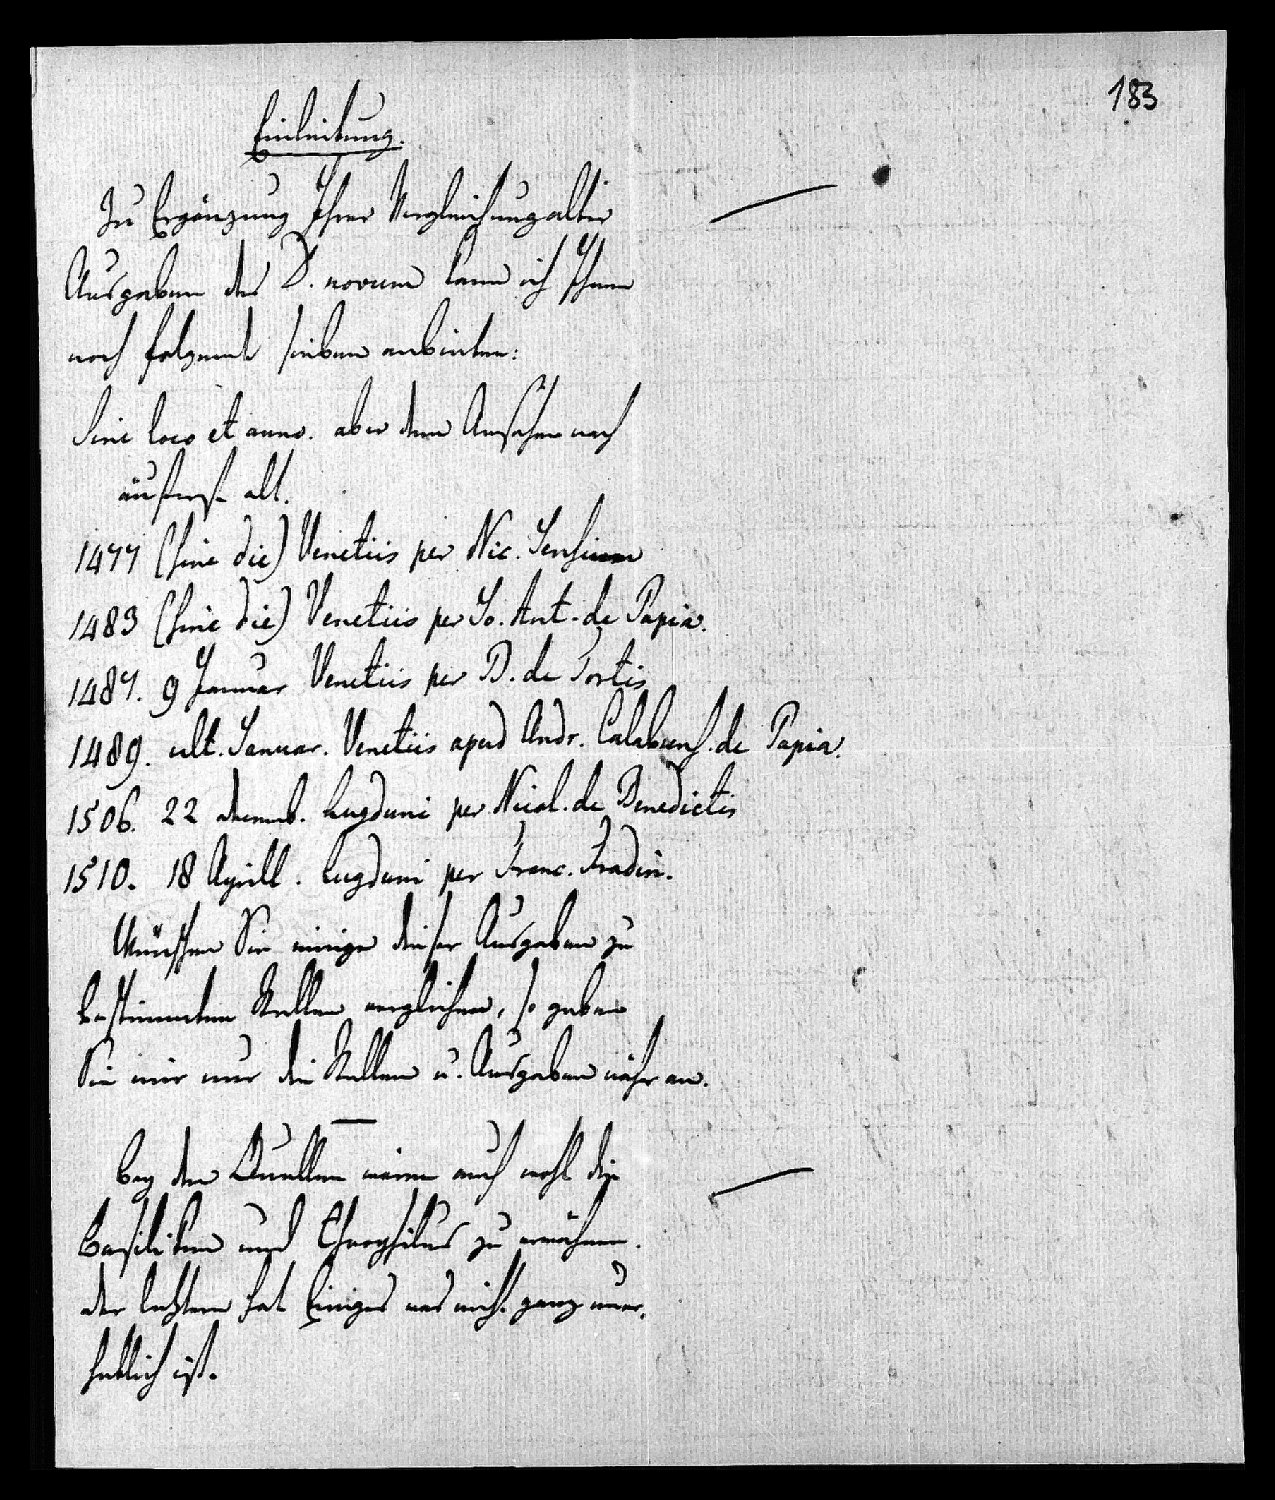 183
Einleitung.
Zu Ergänzung Ihrer Vergleichung alter
Ausgaben des D. novum kann ich Ihnen
noch folgende sieben anbieten:
Sine loco et anno. aber dem Ansehen nach
äusserst alt.
1477 (sine die) Venetiis per Nic. Jenson
1483 (sine die) Venetiis per Jo. Ant. de Papia.
1487. 9 Januar Venetiis per B. de Tortis
1489. ult. Januar. Venetiis apud Andr. Calabrens. de Papia.
1506. 22 decemb. Lugduni per Nicol. de Benedictis
1510. 18 Aprill. Lugduni per Franc. Fradin.
Wünschen Sie einige dieser Ausgaben zu
bestimmten Stellen verglichen, so geben
Sie mir nur die Stellen u. Ausgaben näher an.
Bey den Quellen wären auch wohl die
Basiliken und Theophilus zu erwähnen.
der letztere hat Einiges was nicht ganz uner-
heblich ist.